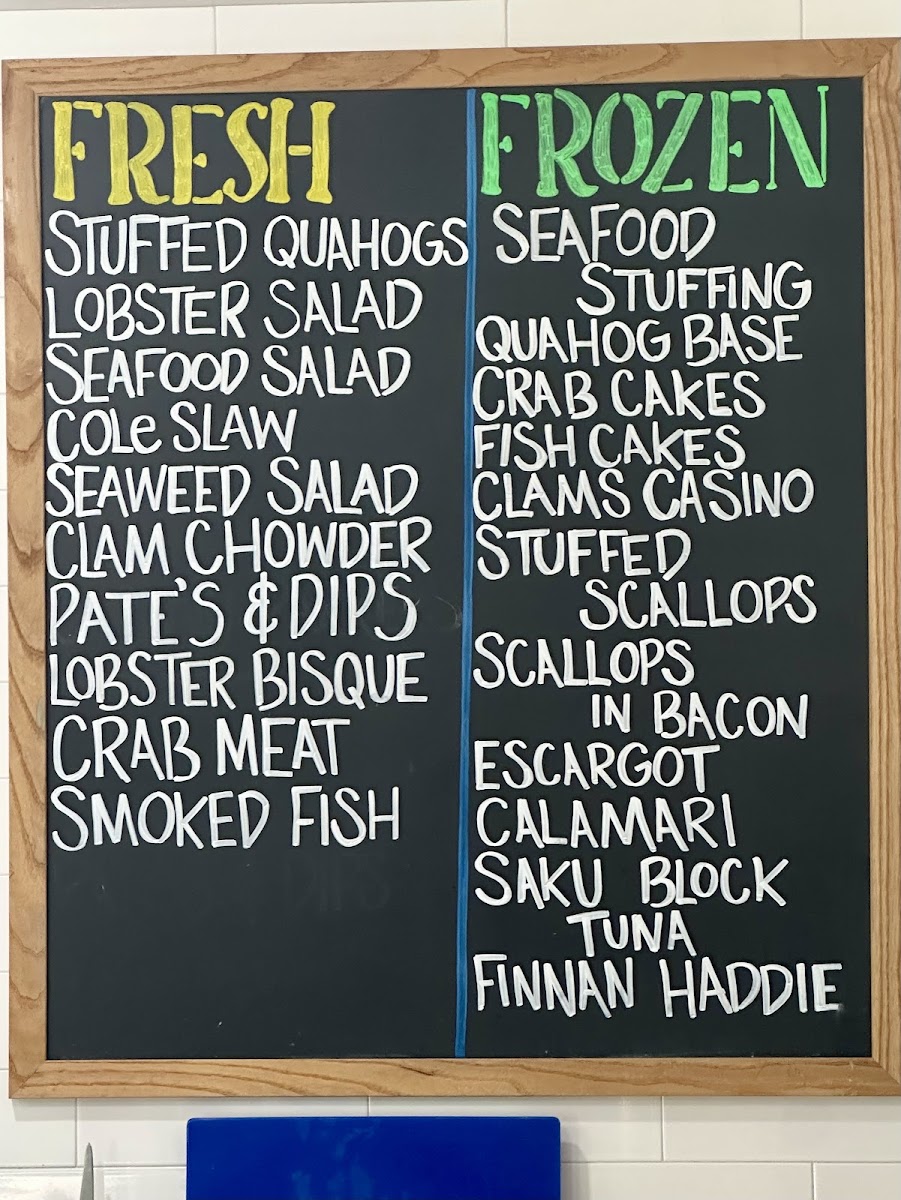 FRESH
STUFFED QUAHOGS
LOBSTER SALAD
SEAFOOD SALAD
COLe SLAW
SEAWEED SALAD
CLAM CHOWDER
PATE'S & DIPS
LOBSTER BISQUE
CRAB MEAT
SMOKED FISH
FROZEN
SEAFOOD
STUFFING
QUAHOG BASE
CRAB CAKES
FISH CAKES
CLAMS CASINO
STUFFED
SCALLOPS
SCALLOPS
IN BACON
ESCARGOT
CALAMARI
SAKU BLOCK
TUNA
FINNAN HADDIE